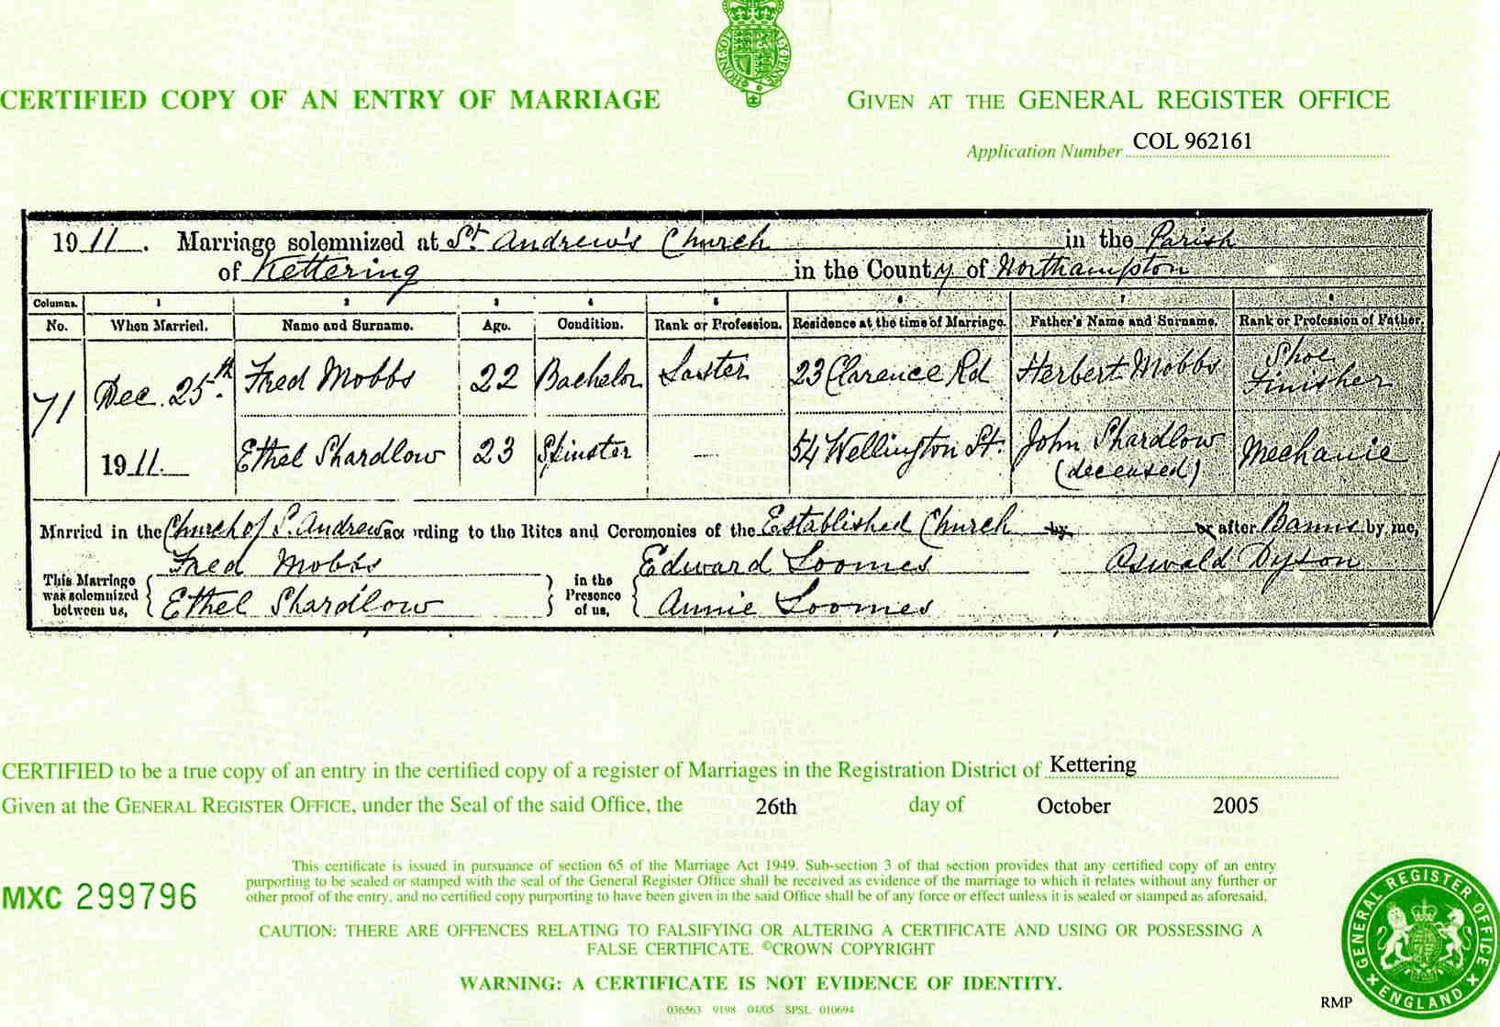 CERTIFIED COPY OF AN ENTRY OF MARRIAGE
GIVEN AT THE GENERAL REGISTER OFFICE
Application Number COL 962161
1911. Marriage solemnized at St. Andrew's Church in the Parish
of Kettering in the County of Northampton
Columns. 1 2 3 4 5 6 7 8
No. When Married. Name and Surname. Age. Condition. Rank or Profession. Residence at the time of Marriage. Father's Name and Surname. Rank or Profession of Father.
71 Dec. 25th. 1911 Fred Mobbs 22 Bachelor Laster 23 Clarence Rd Herbert Mobbs Shoe Finisher
Ethel Shardlow 23 Spinster — 54 Wellington St. John Shardlow (deceased) Mechanic
Married in the Church of S. Andrew according to the Rites and Ceremonies of the Established Church by or after Banns by me,
This Marriage was solemnized between us, Fred Mobbs in the Presence of us, Edward Loomes Oswald Dyson
Ethel Shardlow Annie Loomes
CERTIFIED to be a true copy of an entry in the certified copy of a register of Marriages in the Registration District of Kettering
Given at the GENERAL REGISTER OFFICE, under the Seal of the said Office, the 26th day of October 2005
This certificate is issued in pursuance of section 65 of the Marriage Act 1949. Sub-section 3 of that section provides that any certified copy of an entry
purporting to be sealed or stamped with the seal of the General Register Office shall be received as evidence of the marriage to which it relates without any further or
other proof of the entry, and no certified copy purporting to have been given in the said Office shall be of any force or effect unless it is sealed or stamped as aforesaid.
MXC 299796
CAUTION: THERE ARE OFFENCES RELATING TO FALSIFYING OR ALTERING A CERTIFICATE AND USING OR POSSESSING A
FALSE CERTIFICATE. ©CROWN COPYRIGHT
WARNING: A CERTIFICATE IS NOT EVIDENCE OF IDENTITY.
036563 9198 04/05 SPSL 010694
RMP
GENERAL REGISTER OFFICE
ENGLAND